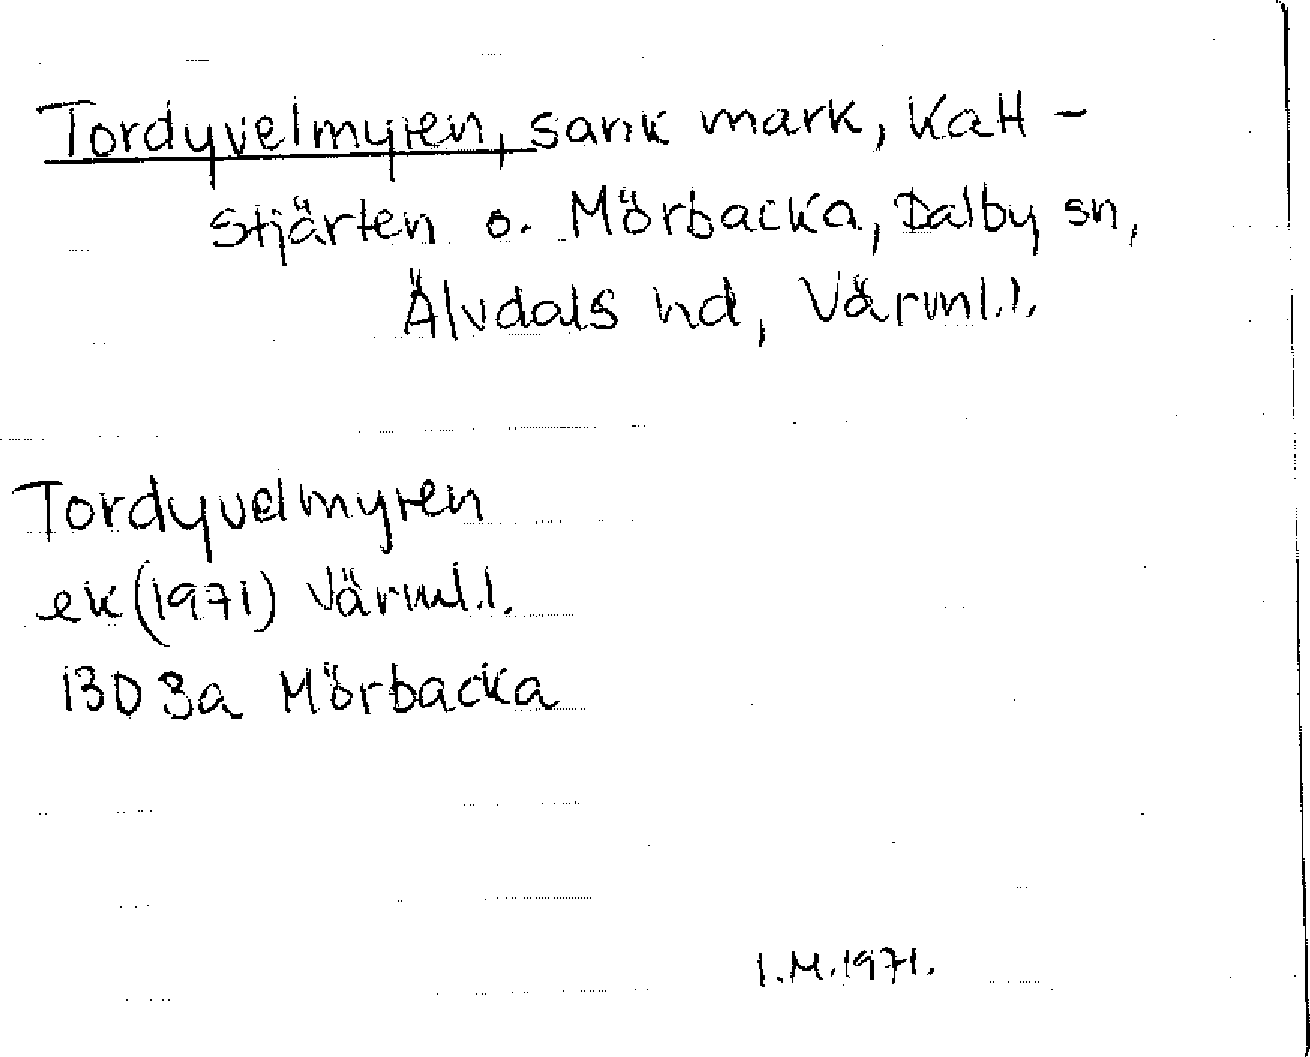 Tordyvelmyren, sank mark, Katt-
stjärten o. Mörbacka, Dalby sn,
Älvdals hd, Värml.l.
Tordyvelmyren
ek (1971) Värml.l.
13D 3a Mörbacka
I.M.1971.